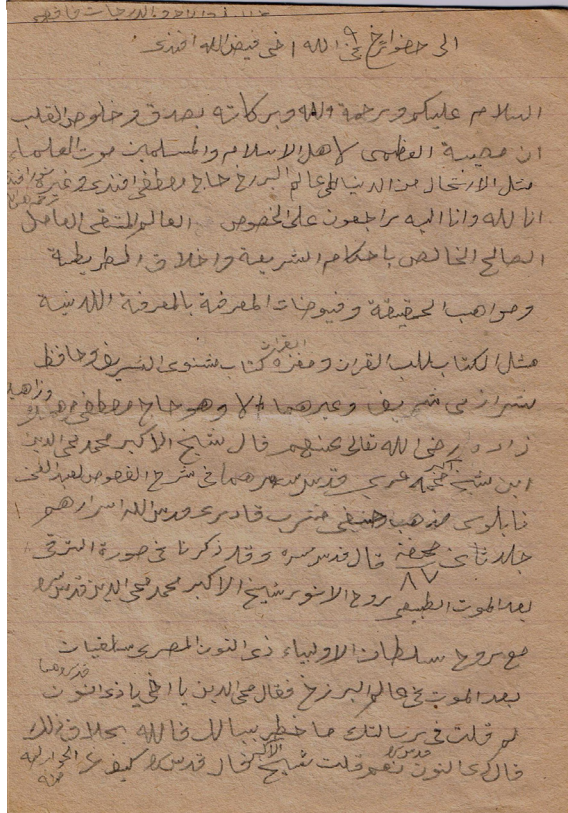 الى حضور اخ في الله اخى فيض الله افندى
السلام عليكم ورحمة الله وبركاته بصدق وخلوص القلب
ان مصيبة العظمى لاهل الاسلام والمسلمين موت العلماء
مثل الارتحال من الدنيا الى عالم البرزخ حاج مصطفى افندى وغيره
انا لله وانا اليه راجعون على الخصوص العالم المتقى العامل
الصالح الخالص باحكام الشريعة واخلاق الطريقة
ومواهب الحقيقة وفيوضات المعرفة بالمعرفة اللدنية
مثل الكتاب للب القران و مغزه القران كتاب مثنوى الشريف وحافظ
شيرازى شريف وغيرهما الا وهو حاج مصطفى
زاده رضى الله تعالى عنهم قال شيخ الاكبر محمد محى الدين
ابن شيخ عربى قدس سرهما فى شرح الفصوص لعبد الغنى
نابلوسى مذهب حنفى مشرب قادرى قدس الله اسرارهم
جلد ثانى صحفة ٨٧ قال قدس سره وقد ذكرنا فى صورة الترقى
بعد الموت الطبيعى بروح الانور شيخ الاكبر محمد محى الدين قدس سره
مع روح سلطان الاولياء ذى النون المصرى
بعد الموت فى عالم البرزخ فقال محى الدين يا اخى يا ذى النون قدس سرهما
لم قلت فى رسالتك ما خطر ببالك فالله بخلاف ذلك
قال ذى النون قدس سره نعم قلت شيخ الاكبر قال قدس سره كيف